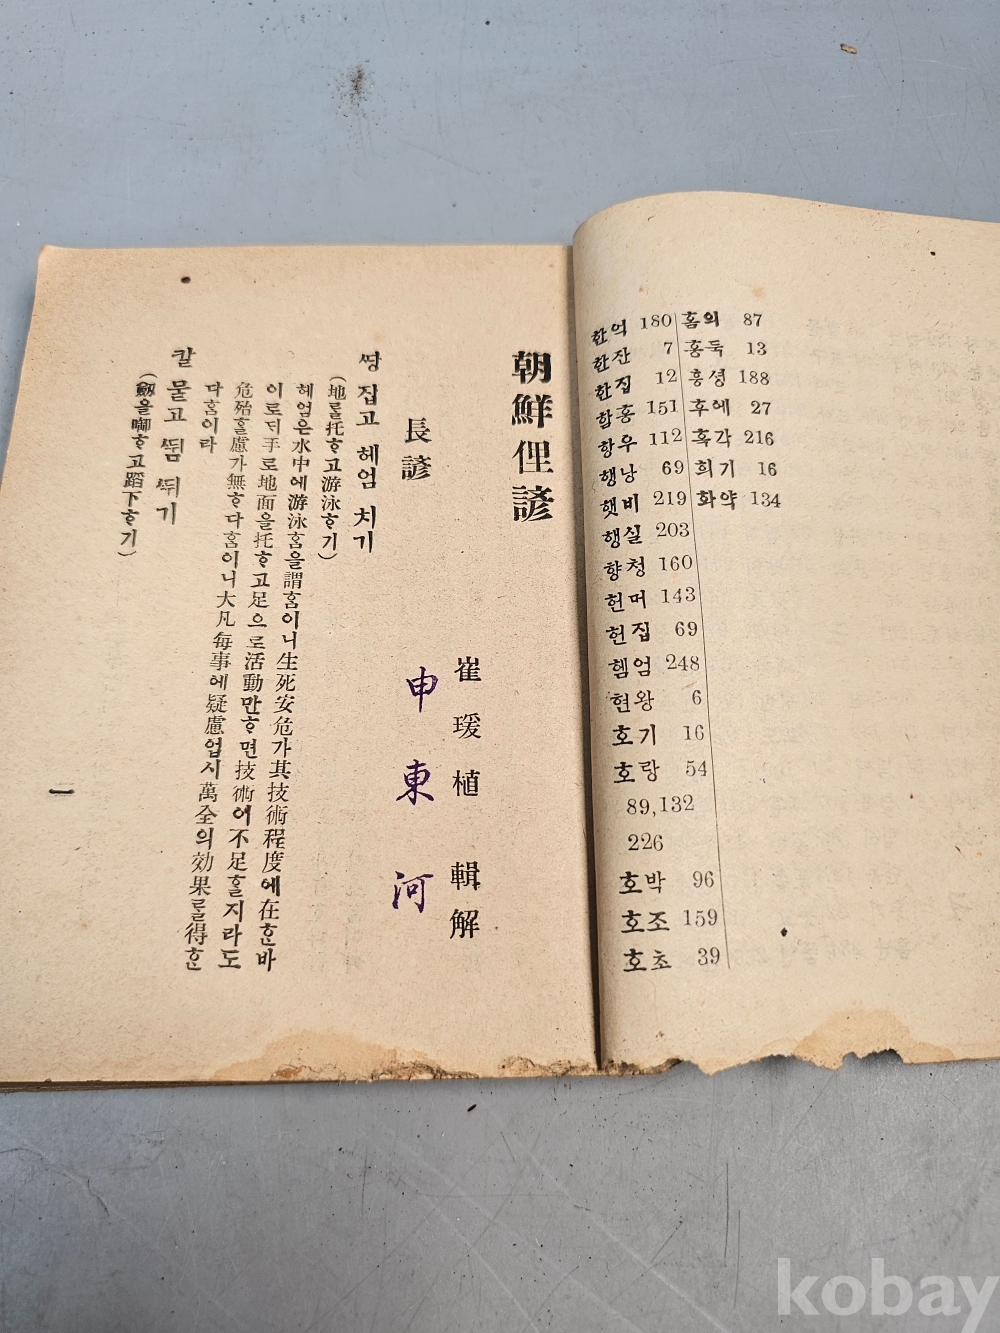 한억 180
한잔 7
한집 12
합홍 151
항우 112
행낭 69
햇비 219
행실 203
향청 160
헌머 143
헌집 69
헴엄 248
현왕 6
호기 16
호랑 54
89,132
226
호박 96
호조 159
호초 39
홈의 87
홍두 13
흥셩 188
후에 27
흑각 216
희기 16
화약 134
朝鮮俚諺
崔瑗植 輯解
長諺
申東河
ᄯᅡᆼ 집고 헤엄 치기
(地를托ᄒᆞ고游泳ᄒᆞ기)
헤엄은水中에游泳ᄒᆞᆷ을謂ᄒᆞᆷ이니生死安危가其技術程度에在ᄒᆞᆫ바
이로ᄃᆡ手로地面을托ᄒᆞ고足으로活動만ᄒᆞ면技術이不足ᄒᆞᆯ지라도
危殆ᄒᆞᆯ慮가無ᄒᆞ다ᄒᆞᆷ이니大凡每事에疑慮업시萬全의効果를得ᄒᆞᆫ
다ᄒᆞᆷ이라
칼 물고 ᄯᅱᆷ ᄯᅱ기
(劒을啣ᄒᆞ고蹈下ᄒᆞ기)
一
kobay